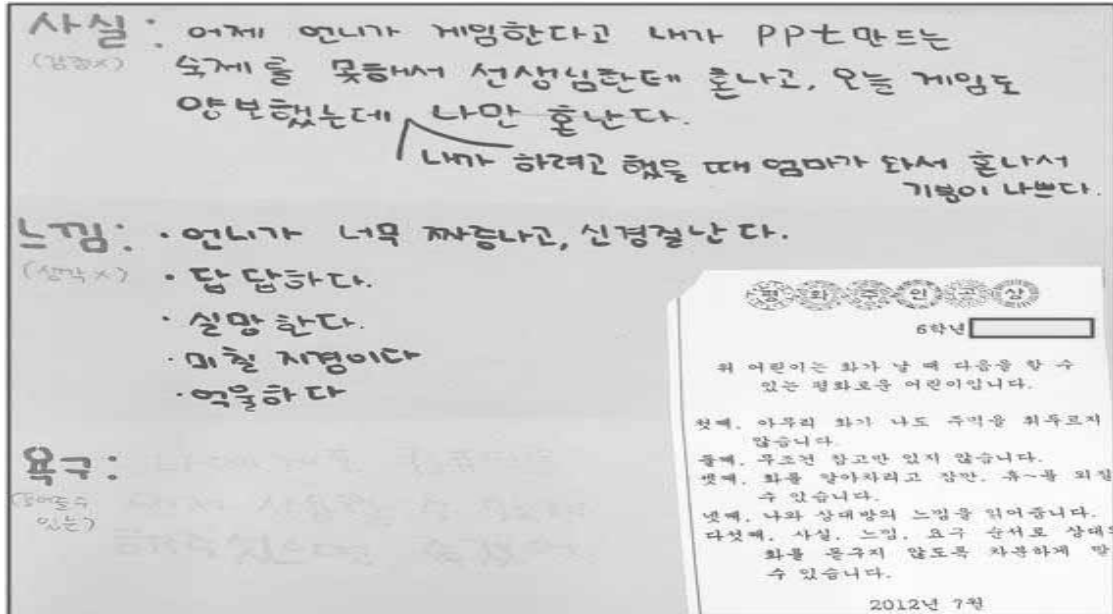 사실 : 어제 언니가 게임한다고 내가 PPt만드는
(감정×) 숙제를 못해서 선생님한테 혼나고, 오늘 게임도
양보했는데 나만 혼난다.
내가 하려고 했을 때 엄마가 와서 혼나서
기분이 나쁘다.
느낌 : · 언니가 너무 짜증나고, 신경질난다.
(생각×) · 답답하다.
· 실망한다.
· 미칠 지경이다
· 억울하다
욕구 :
(들어줄수
있는)
평화주인공상
6학년
위 어린이는 화가 날 때 다음을 할 수
있는 평화로운 어린이입니다.
첫째, 아무리 화가 나도 주먹을 휘두르지
않습니다.
둘째, 무조건 참고만 있지 않습니다.
셋째, 화를 알아차리고 잠깐, 휴~를 외칠
수 있습니다.
넷째, 나와 상대방의 느낌을 읽어줍니다.
다섯째, 사실, 느낌, 요구 순서로 상대
화를 돋구지 않도록 차분하게 말
수 있습니다.
2012년 7월